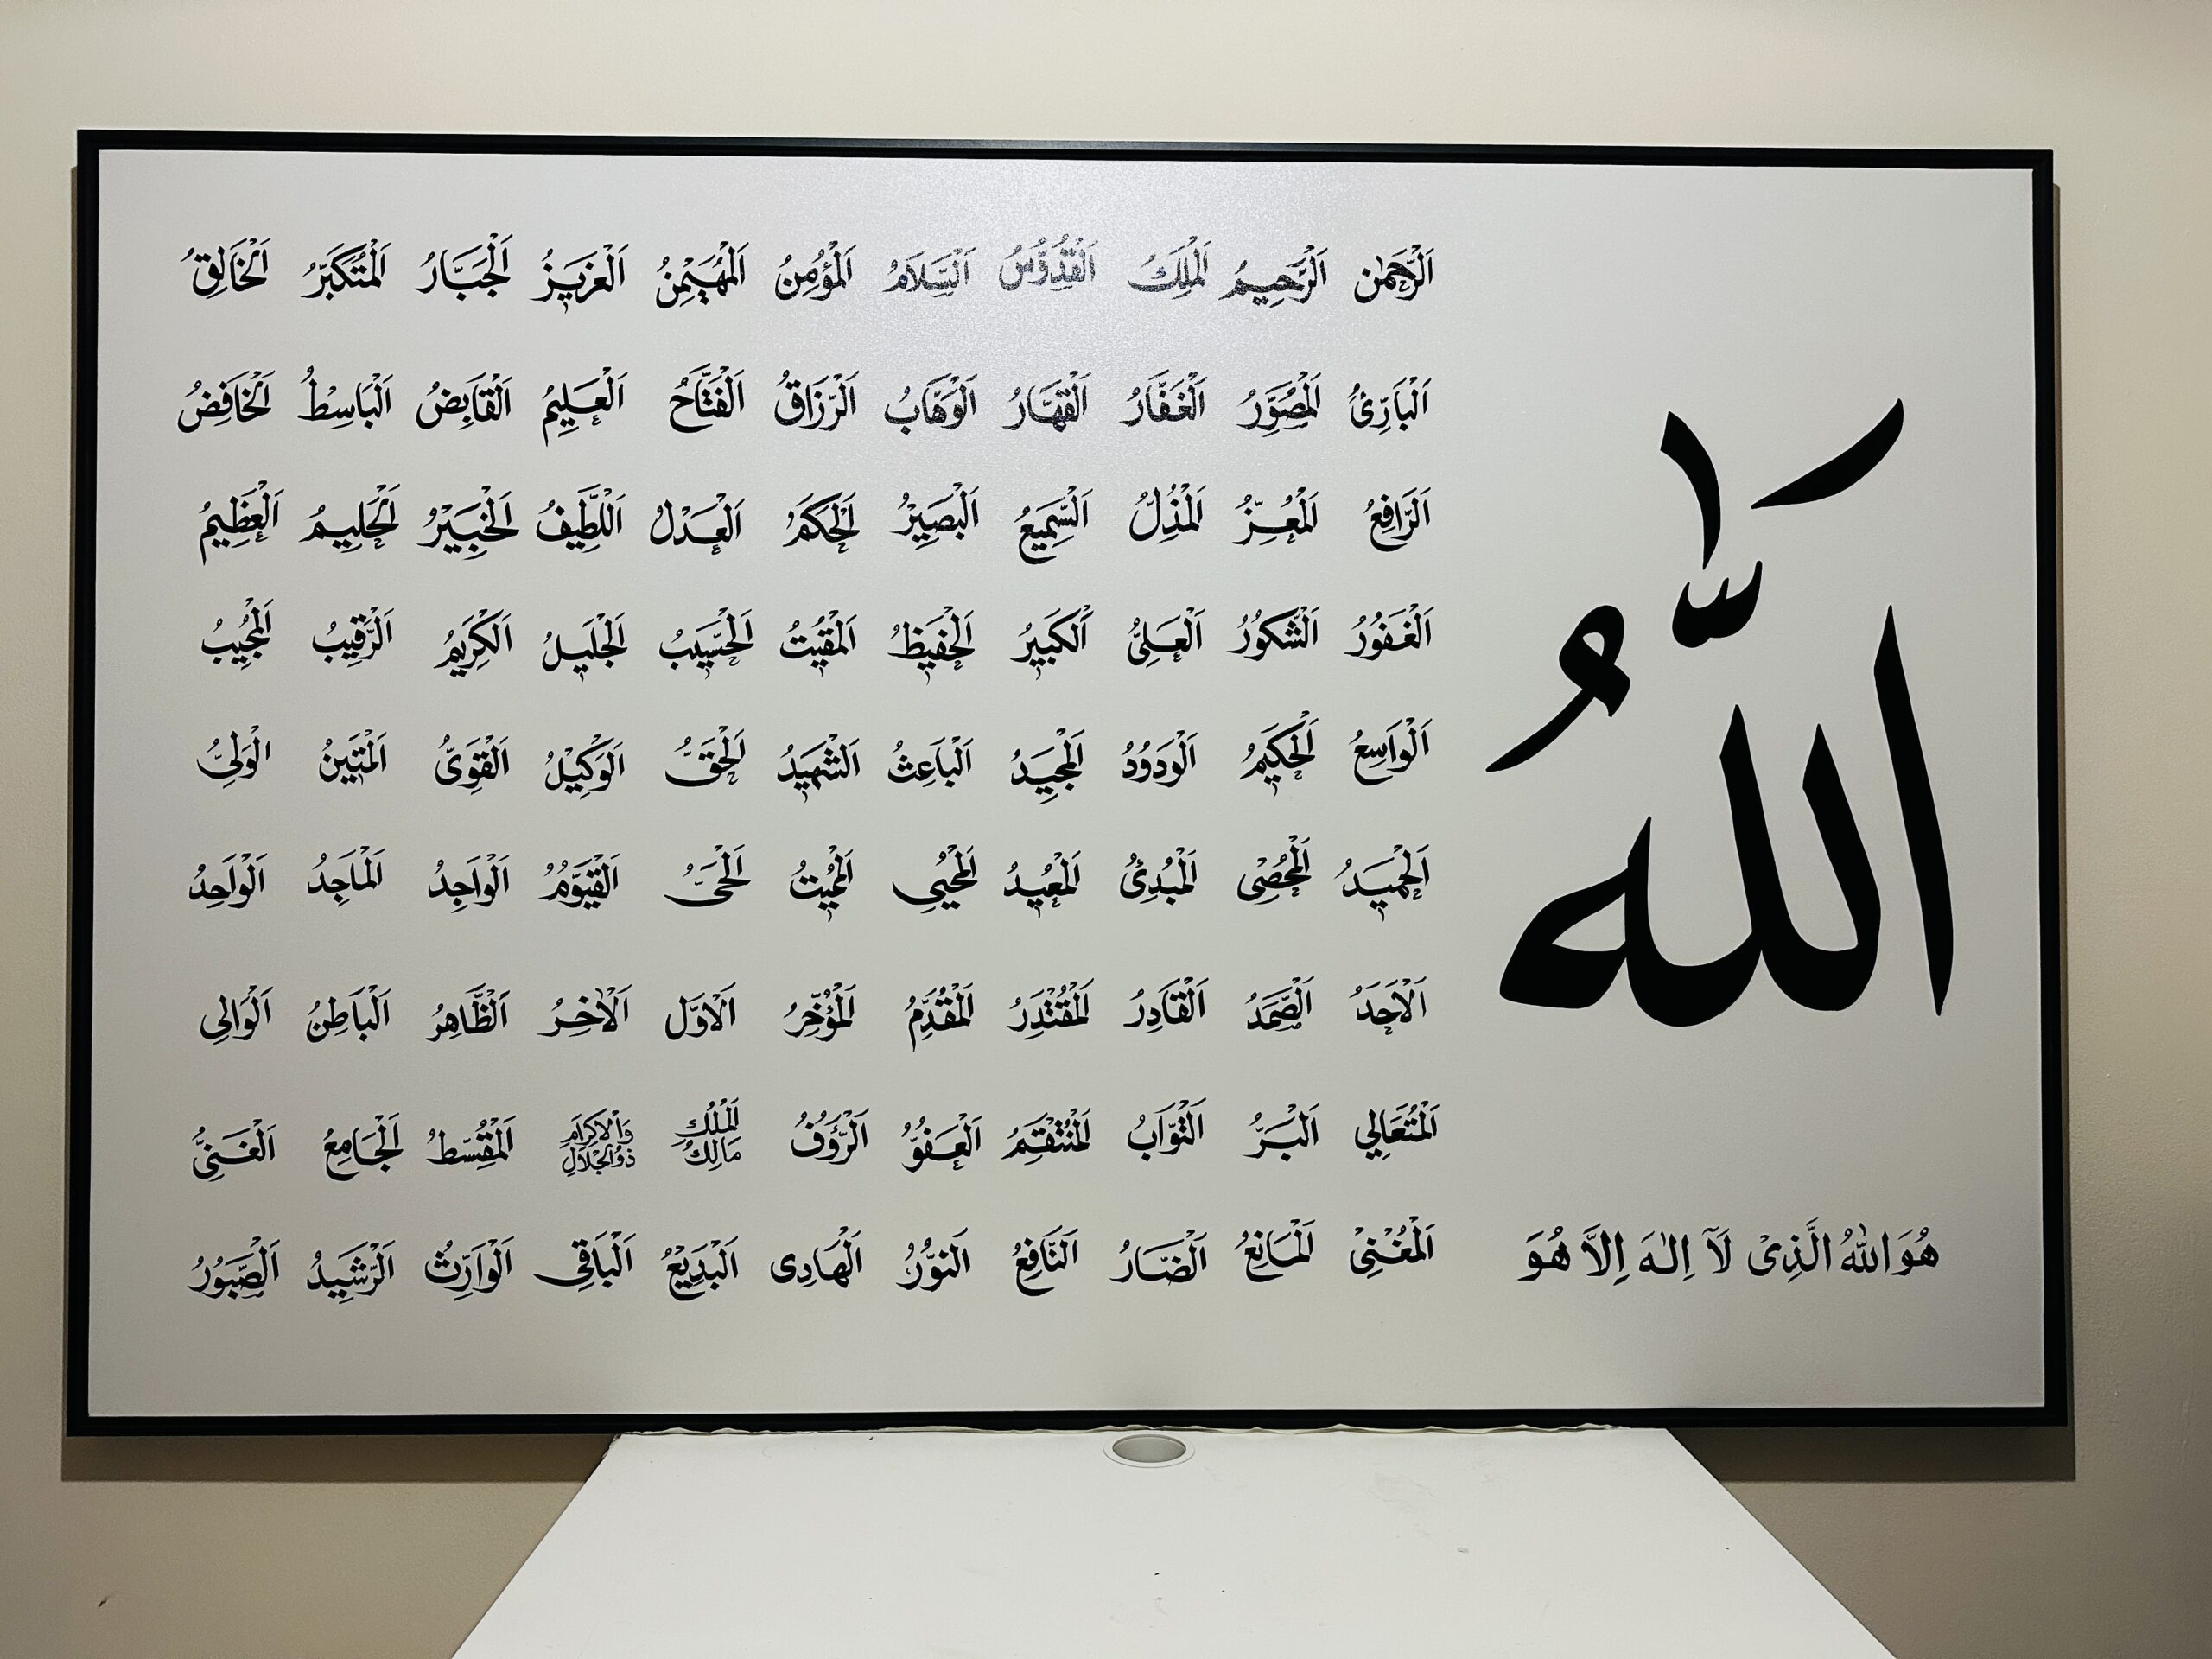 اَلرَّحْمٰن اَلرَّحِيمُ اَلْمَلِكُ اَلْقُدُّوسُ اَلسَّلَامُ اَلْمُؤْمِنُ اَلْمُهَيْمِنُ اَلْعَزِيزُ اَلْجَبَّارُ اَلْمُتَكَبِّرُ اَلْخَالِقُ
اَلْبَارِئُ اَلْمُصَوِّرُ اَلْغَفَّارُ اَلْقَهَّارُ اَلْوَهَّابُ اَلرَّزَاقُ اَلْفَتَّاحُ اَلْعَلِيمُ اَلْقَابِضُ اَلْبَاسِطُ اَلْخَافِضُ
اَلرَّافِعُ اَلْمُعِزُّ اَلْمُذِلُّ اَلسَّمِيعُ اَلْبَصِيرُ اَلْحَكَمُ اَلْعَدْلُ اَللَّطِيفُ اَلْخَبِيْرُ اَلْحَلِيمُ اَلْعَظِيمُ
اَلْغَفُورُ اَلشَّكُورُ اَلْعَلِىُّ اَلْكَبِيرُ اَلْحَفِيظُ اَلْمُقِيتُ اَلْحَسِيبُ اَلْجَلِيلُ اَلْكَرِيمُ اَلرَّقِيبُ اَلْمُجِيبُ
اَلْوَاسِعُ اَلْحَكِيمُ اَلْوَدُودُ اَلْمَجِيدُ اَلْبَاعِثُ اَلشَّهِيدُ اَلْحَقُّ اَلْوَكِيْلُ اَلْقَوِىُّ اَلْمَتِينُ الْوَلِىُّ
اَلْحَمِيدُ اَلْمُحْصِى اَلْمُبْدِئُ اَلْمُعِيدُ اَلْمُحْيِي اَلْمُمِيتُ اَلْحَىُّ اَلْقَيُّومُ اَلْوَاجِدُ اَلْمَاجِدُ اَلْوَاحِدُ
اَلْاَحَدُ اَلصَّمَدُ اَلْقَادِرُ اَلْمُقْتَدِرُ اَلْمُقَدِّمُ اَلْمُؤَخِّرُ اَلْاَوَّل اَلْاٰخِرُ اَلظَّاهِرُ اَلْبَاطِنُ اَلْوَالِى
اَلْمُتَعَالِي اَلْبَرُّ اَلتَّوَّابُ اَلْمُنْتَقِمُ اَلْعَفُوُّ اَلرَّؤُفُ مَالِكُ الْمُلْك ذُوالْجَلَالِ وَالْاِكْرَامِ اَلْمُقْسِطُ اَلْجَامِعُ اَلْغَنِىُّ
اَلْمُغْنِىْ اَلْمَانِعُ اَلضَّارُ اَلنَّافِعُ اَلنُّوْرُ اَلْهَادِى اَلْبَدِيْعُ اَلْبَاقِى اَلْوَارِثُ اَلرَّشِيدُ اَلصَّبُورُ
اللّٰهُ
هُوَ اللهُ الَّذِىْ لَآ اِلٰهَ اِلَّا هُوَ